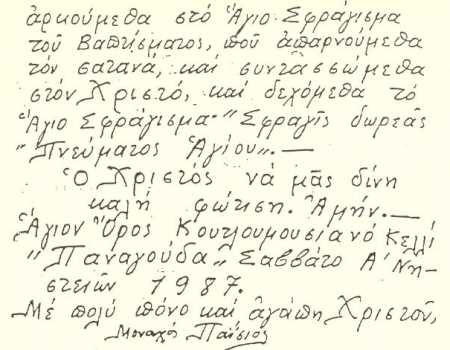 ἀρκούμεθα στό Ἅγιο Σφράγισμα
τοῦ Βαπτίσματος, πού ἀπαρνούμεθα
τόν σατανά, καί συντασσώμεθα
στόν Χριστό, καί δεχόμεθα τό
Ἅγιο Σφράγισμα "Σφραγίς δωρεᾶς
"Πνεύματος Ἁγίου".—
Ὁ Χριστός νά μᾶς δίνη
καλή φώτιση. Ἀμήν.—
Ἅγιον Ὄρος Κουτλουμουσιανό Κελλί
"Παναγούδα" Σαββάτο Α' Νη-
στειῶν 1987.
Μέ πολύ πόνο καί ἀγάπη Χριστοῦ,
Μοναχός Παΐσιος